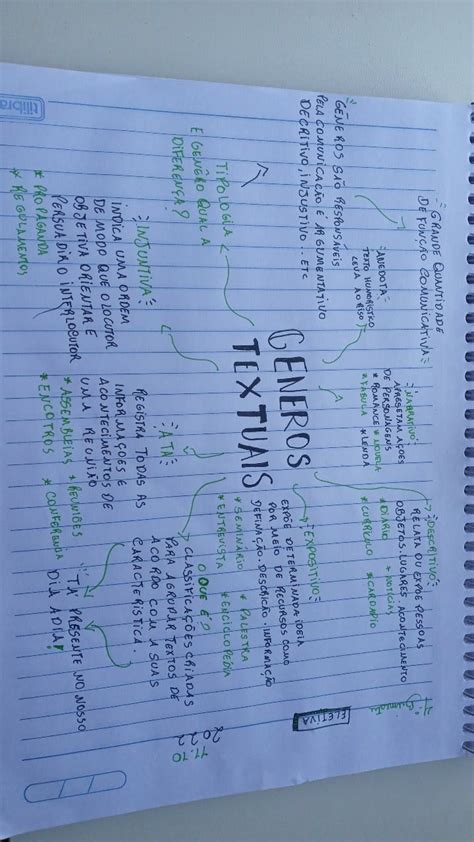 GRANDE QUANTIDADE
DE FUNÇÃO COMUNICATIVA
GÊNEROS SÃO RESPONSÁVEIS
PELA COMUNICAÇÃO É ARGUMENTATIVO
DECRITIVO, INJUSTIVO. ETC
ANEDOTA:
TEXTO HUMORÍSTICO
LEVA AO RISO
NARRATIVO
APRESETAM AÇÕES
DE PERSONAGENS
* ROMANCE * NOVELA
* FÁBULA * LENDA
DESCRITIVO
RELATA OU EXPÕE PESSOAS
OBJETOS, LUGARES, ACONTECIMENTO
* DIÁRIO * NOTÍCIAS
* CURRÍCULO * CARDÁPIO
ELETIVA
11.10
2022
TIPOLOGIA
E GENÊRO QUAL A
DIFERENÇA?
GÊNEROS
TEXTUAIS
EXPOSITIVO
EXPÕE DETERMINADA IDEIA
POR MEIO DE RECURSOS COMO
DEFINAÇÃO, DESCRICÃO, INFORMAÇÃO
* SEMINÁRIO * PALESTRA
* ENTREVISTA * ENCICLOPÉDIA
INJUNTIVA
INDICA UMA ORDEM
DE MODO QUE O LOCUTOR
OBJETIVA ORIENTAR E
PERSUADIR O INTERLOCUTOR
* PROPAGANDA
* REGULAMENTOS
ATA
REGISTRA TODAS AS
INFORMAÇÕES E
ACONTECIMENTOS DE
UMA REUNIÃO
* ASSEMBLEIAS * REUNIÕES
* ENCOTROS * CONFERÊNCIA
O QUE É?
CLASSIFICAÇÕES CRIADAS
PARA AGRUPAR TEXTOS DE
ACORDO COM A SUAS
CARACTERISTICA.
TÁ PRESENTE NO NOSSO
DIA A DIA!
tilibra